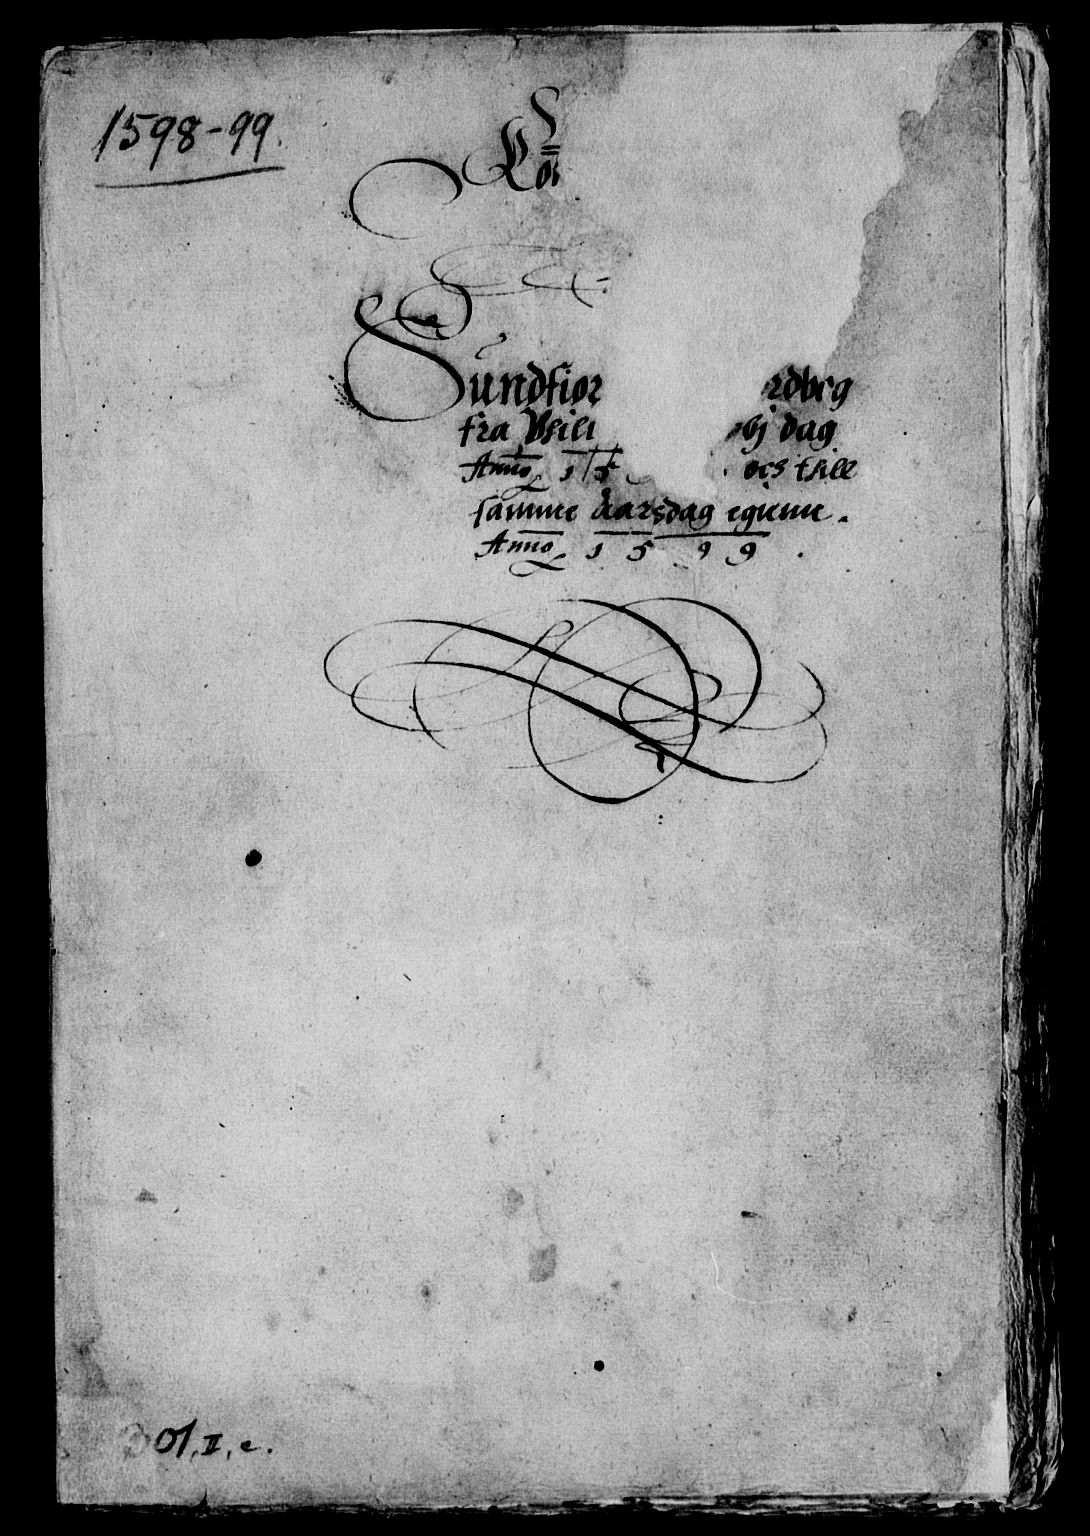 1598-99.
Sundfior rdbrg
fra Phili bj dag
Anno 15 och thill
samme Aarsdag egienn.
Anno 1599.